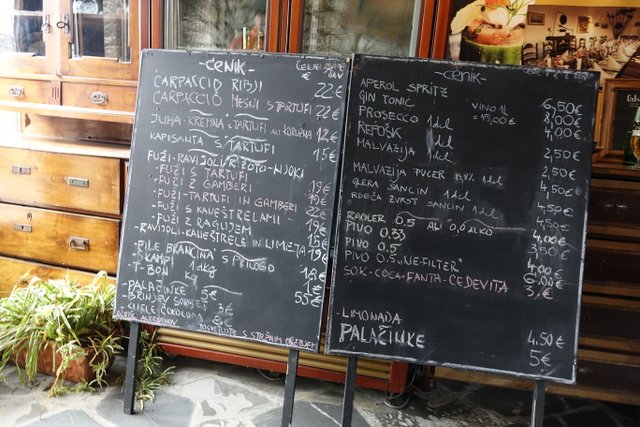 -CENIK-
CENE SO Z DDV
€
CARPACCIO RIBJI 22€
CARPACCIO MESNI S TARTUFI 22€
JUHA-KREMNA S TARTUFI ALI KORUZNA 12€
KAPESANTA S TARTUFI 15€
FUŽI-RAVIJOLI-RIŽOTO-NJOKI
-FUŽI S TARTUFI 19€
-FUŽI Z GAMBERI 19€
-FUŽI-TARTUFI IN GAMBERI 22€
-FUŽI S KANEŠTRELAMI 19€
-FUŽI Z RAGUJEM 15€
-RAVIJOLI-KANEŠTRELE IN LIMETA 19€
-FILE BRANCINA S PRILOGO 18€
-ŠKAMPI 1dkg 1€
-T-BON kg 55€
-PALAČINKE 5€
3€
POSPEŠITE S STRAŽNIM OSEBJEM
-CENIK-
APEROL SPRITZ 6,50€
GIN TONIC 8,00€
VINO 1L = 15,00€
PROSECCO 1dcl 4,00€
REFOŠK 1dcl
MALVAZIJA 1dcl 2,50€
2,50€
MALVAZIJA PUCER 1dcl 4,50€
SANCIN 1dcl 4,50€
RDEČA ZVRST SANCIN 1dcl 4,50€
RADLER 0,5 ALI 0,0 ALKO 4,50€
PIVO 0,33 4,00€
PIVO 0,5
PIVO 0,5 "NE-FILTER" 4,00€
6,00€
SOK-COCA-FANTA-CEDEVITA 3,€
-LIMONADA 4,50€
PALAČINKE 5€